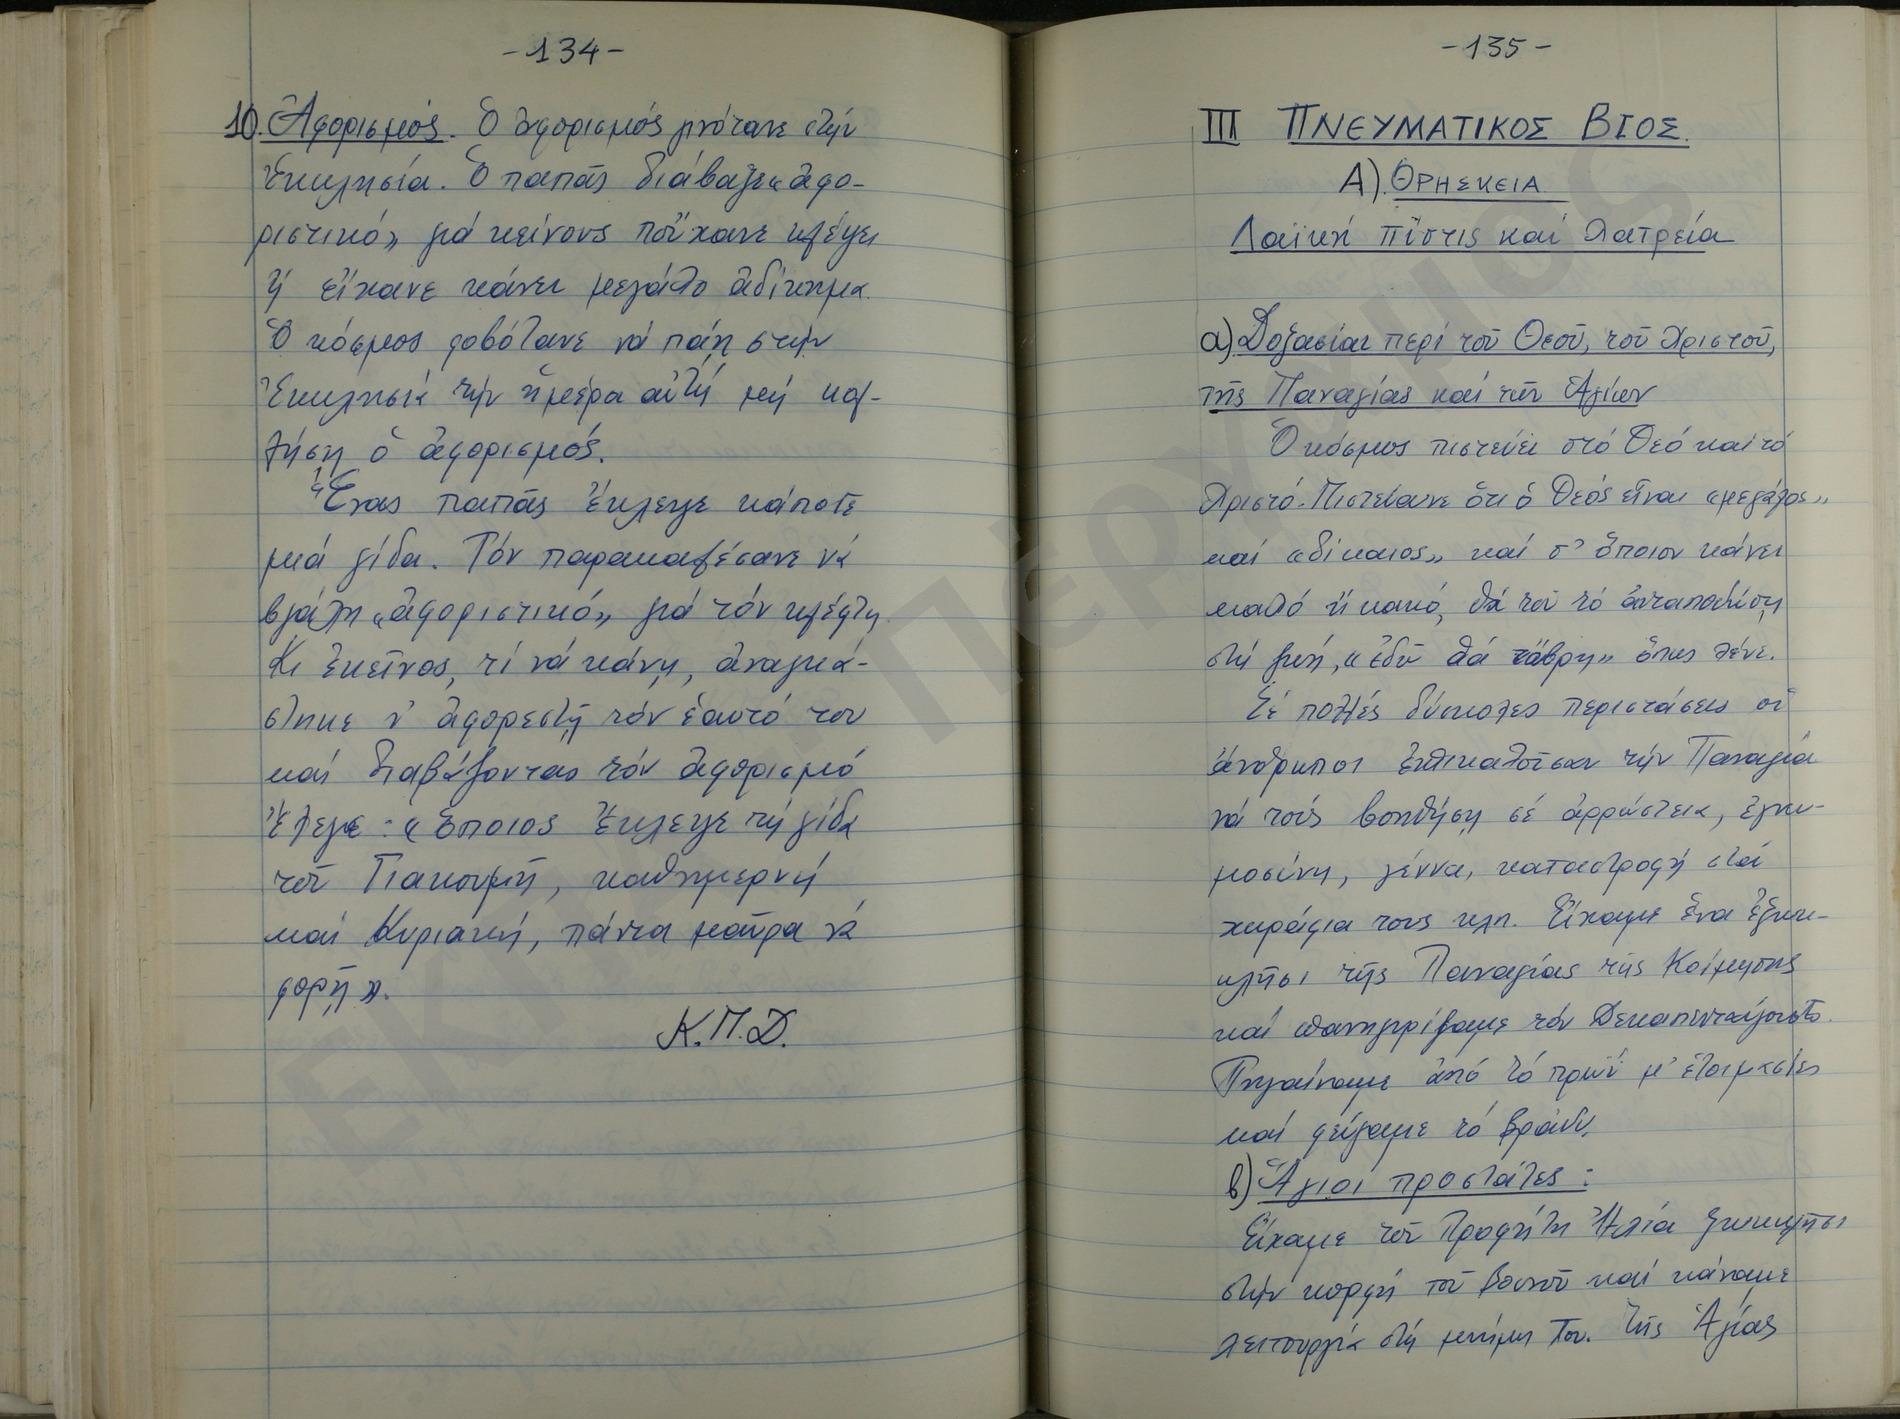 -134-
10. Ἀφορισμός. Ὁ ἀφορισμός γινότανε στήν
Ἐκκλησία. Ὁ παπᾶς διάβαζε «ἀφο-
ριστικό» γιά κείνους πού'χανε κλέψει
ἤ εἴχανε κάνει μεγάλο ἀδίκημα.
Ὁ κόσμος φοβότανε νά πάῃ στήν
Ἐκκλησιά τήν ἡμέρα αὐτή μή κολ-
λήσῃ ὁ ἀφορισμός.
Ἕνας παπᾶς ἔκλεψε κάποτε
μιά γίδα. Τόν παρακαλέσανε νά
βγάλη «ἀφοριστικό» γιά τόν κλέφτη.
Κι ἐκεῖνος, τί νά κάνῃ, ἀναγκά-
στηκε ν' ἀφορεστῇ τόν ἑαυτό του
καί διαβάζοντας τόν ἀφορισμό
ἔλεγε: «Ὅποιος ἔκλεψε τή γίδα
τοῦ Γιακουμῆ, καθημερνή
καί Κυριακή, πάντα μαῦρα νά
φορῇ».
Κ.Π.Δ.
-135-
III ΠΝΕΥΜΑΤΙΚΟΣ ΒΙΟΣ.
Α). ΘΡΗΣΚΕΙΑ
Λαϊκή πίστις καί λατρεία
α) Δοξασίαι περί τοῦ Θεοῦ, τοῦ Χριστοῦ,
τῆς Παναγίας καί τῶν Ἁγίων
Ὁ κόσμος πιστεύει στό Θεό καί τό
Χριστό. Πιστεύανε ὅτι ὁ Θεός εἶναι «μεγάλος»
καί «δίκαιος» καί σ' ὅποιον κάνει
καλό ἤ κακό, θά τοῦ τό ἀνταποδώσῃ
στή ζωή, «ἐδῶ θά τἄβρη» ὅπως λένε.
Σέ πολλές δύσκολες περιστάσεις οἱ
ἄνθρωποι ἐπικαλοῦσαν τήν Παναγία
νά τούς βοηθήσῃ σέ ἀρρώστεια, ἐγκυ-
μοσύνη, γέννα, καταστροφή στά
χωράφια τους κλπ. Εἴχαμε ἕνα ἐξωκ-
κλῆσι τῆς Παναγίας τῆς Κοίμησης
καί πανηγυρίζαμε τόν Δεκαπενταύγουστο.
Πηγαίναμε ἀπό τό πρωΐ μ' ἑτοιμασίες
καί φεύγαμε τό βράδυ.
β) Ἅγιοι προστάτες:
Εἴχαμε τοῦ Προφήτη Ἠλία ξωκκλῆσι
στήν κορφή τοῦ βουνοῦ καί κάναμε
λειτουργία στή μνήμη Του. Τῆς Ἁγίας
ΕΚΠΑ - ΠΕΡΓΑΜΟΣ